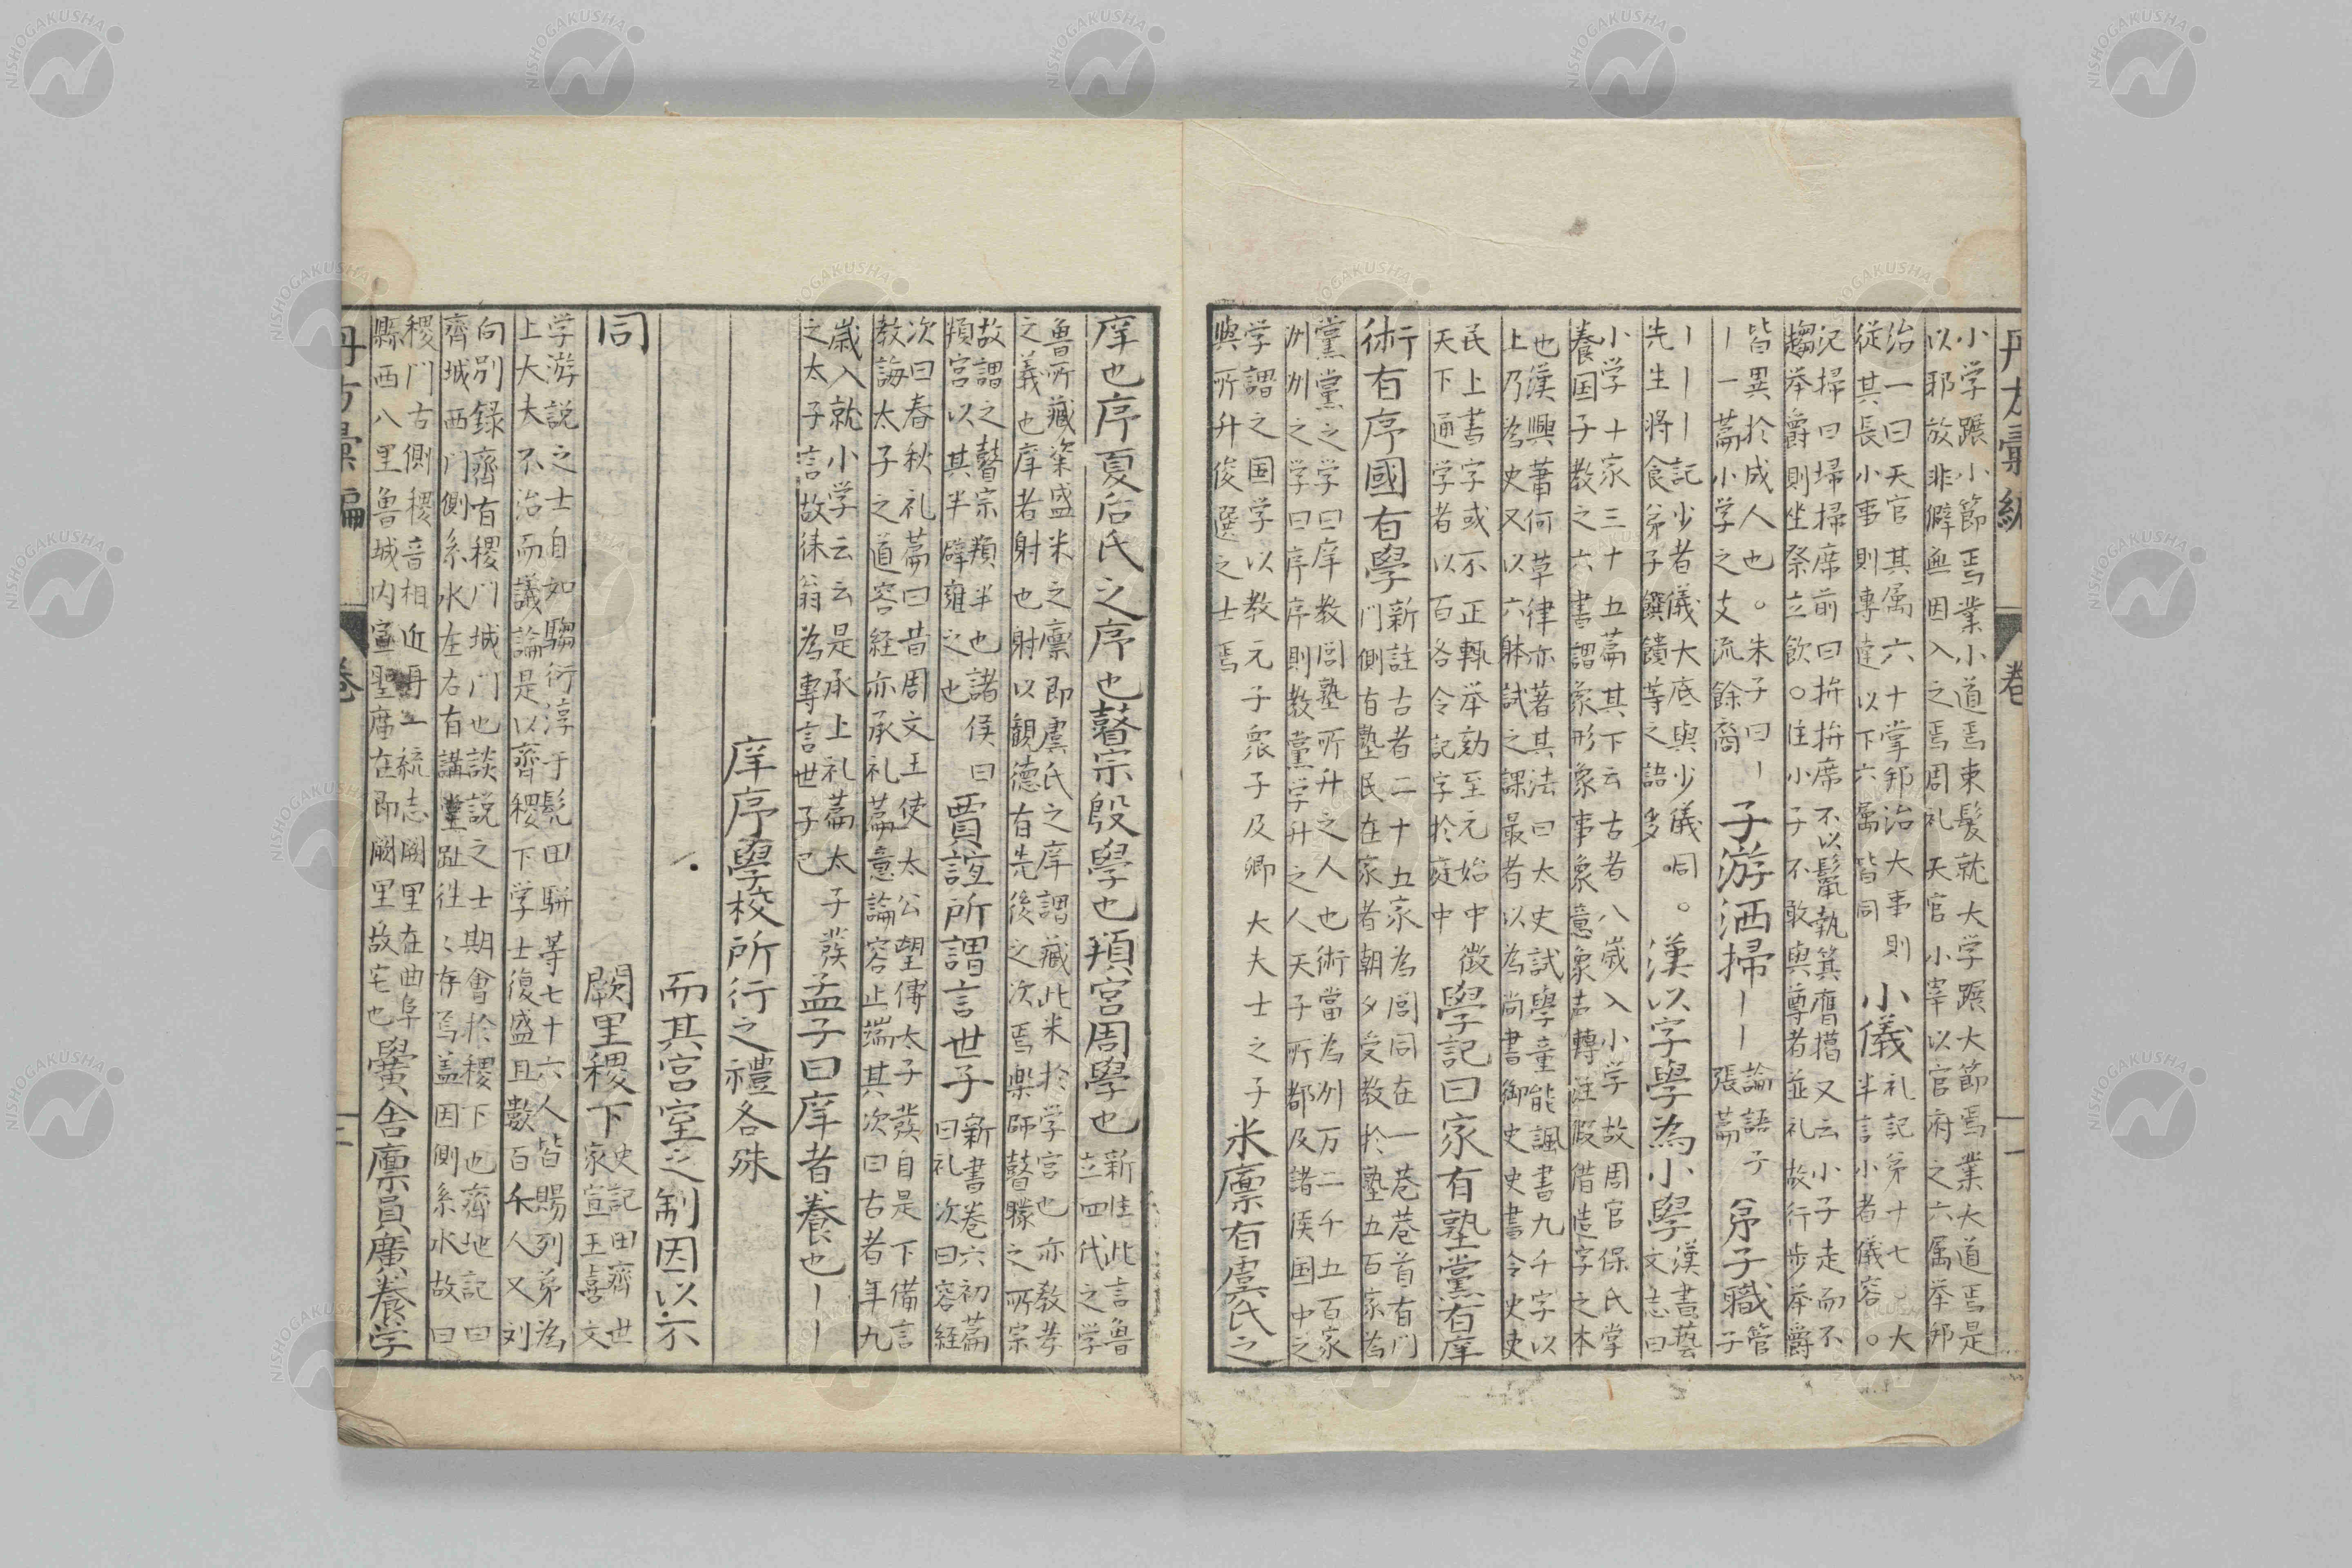 小学蹍小節焉業小道焉束髮就大学蹍大節焉業大道焉是
以耶放非僻無因入之焉周礼天官小宰以官府之六属举邦
治一曰天官其属六十掌邦治大事則
従其長小事則專達以下六属皆同
小儀
礼記第十七〇大
半言小者儀容〇
汜掃曰埽掃席前曰拚拚席不以鬛執箕膺擖又云小子走而不
趨举爵則坐祭立飲〇住小子不敢與尊者並礼故行步举爵
皆異於成人也。朱子曰ー
ー一篇小学之支流餘裔
子游洒掃ーー
論語子
張篇
弟子職
管
子
ーーー記少者儀大底與少儀同。
先生將食弟子饌饋等之語多
漢以字學為小學
漢書藝
文志曰
小学十家三十五篇其下云古者八歳入小学故周官保氏掌
養国子教之六書謂象形象事象意象声轉注假借造字之本
也漢興萧何草律亦著其法曰太史試學童能諷書九千字以
上乃為史又以六躰試之課最者以為尚書御史史書令史吏
民上書字或不正輒举劾至元始中徴
天下通学者以百各令記字於庭中
學記曰家有塾黨有庠
術有序國有學
新註古者二十五家為閭同在一巷巷首有門
門側有塾民在家者朝夕受教於塾五百家為
黨黨之学曰庠教閭塾所升之人也術當為州万二千五百家
州州之学曰序序則教黨学升之人天子所都及諸侯国中之
学謂之国学以教元子衆子及卿大夫士之子
與所升俊選之士焉
米廪有虞氏之
庠也序夏后氏之序也瞽宗殷學也頖宮周學也
新註此言魯
立四代之学
魯所藏粢盛米之廪即虞氏之庠謂藏此米於学宮也亦教孝
之義也庠者射也射以観德有先後之次焉楽師瞽矇之所宗
故謂之瞽宗頖半也諸侯曰
頖宮以其半辟雍之也
賈誼所謂言世子
新書巻六初篇
曰礼次曰容経
次曰春秋礼篇曰昔周文王使太公望傅太子発自是下備言
教誨太子之道容経亦承礼篇意論容止端其次曰古者年九
歳入就小学云云是承上礼篇太子発
之太子言故徠翁為專言世子已
孟子曰庠者養也ーー
庠序學校所行之禮各殊
而其宮室之制因以不
同
闕里稷下
史記田齊世
家宣王喜文
学游説之士自如騶衍淳于髡田駢等七十六人皆賜列弟為
上大夫不治而議論是以齊稷下学士復盛且數百千人又刘
向别録齊有稷門城門也談説之士期會於稷下也齊地記曰
齊城西門側系水左右有講堂趾徃〻存焉盖因側系水故曰
稷門古側稷音相近再一統志闕里在曲阜
縣西八里魯城内宣聖廟在即闕里故宅也
黌舎廪員廣養学